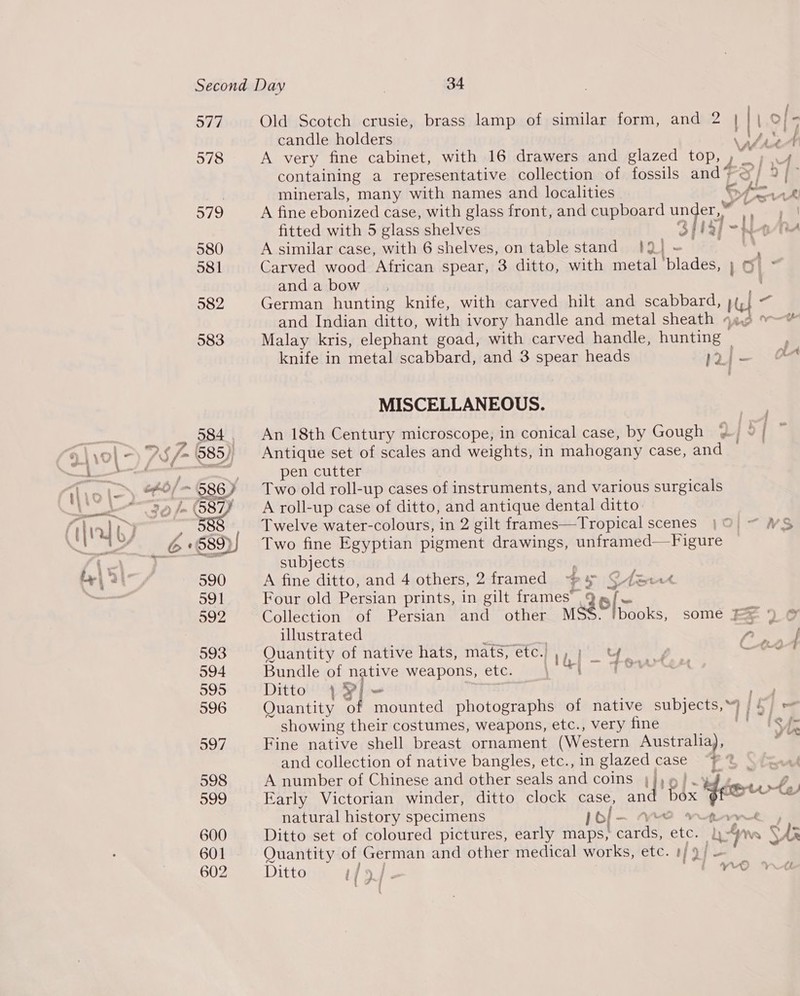 Second Day 34
577 Old Scotch crusie, brass lamp of similar form, and 2
candle holders
578 A very fine cabinet, with 16 drawers and glazed top,
containing a representative collection of fossils and
minerals, many with names and localities
579 A fine ebonized case, with glass front, and cupboard under,
fitted with 5 glass shelves
580 A similar case, with 6 shelves, on table stand
581 Carved wood African spear, 3 ditto, with metal blades,
and a bow
582 German hunting knife, with carved hilt and scabbard,
and Indian ditto, with ivory handle and metal sheath
583 Malay kris, elephant goad, with carved handle, hunting
knife in metal scabbard, and 3 spear heads
MISCELLANEOUS.
584 An 18th Century microscope, in conical case, by Gough
585 Antique set of scales and weights, in mahogany case, and
pen cutter
586 Two old roll-up cases of instruments, and various surgicals
587 A roll-up case of ditto, and antique dental ditto
588 Twelve water-colours, in 2 gilt frames—Tropical scenes
589 Two fine Egyptian pigment drawings, unframed—Figure
subjects
590 A fine ditto, and 4 others, 2 framed
591 Four old Persian prints, in gilt frames
592 Collection of Persian and other MSS. books, some
illustrated
593 Quantity of native hats, mats, etc.
594 Bundle of native weapons, etc.
595 Ditto
596 Quantity of mounted photographs of native subjects,
showing their costumes, weapons, etc., very fine
597 Fine native shell breast ornament (Western Australia),
and collection of native bangles, etc., in glazed case
598 A number of Chinese and other seals and coins
599 Early Victorian winder, ditto clock case, and box
natural history specimens
600 Ditto set of coloured pictures, early maps, cards, etc.
601 Quantity of German and other medical works, etc.
602 Ditto